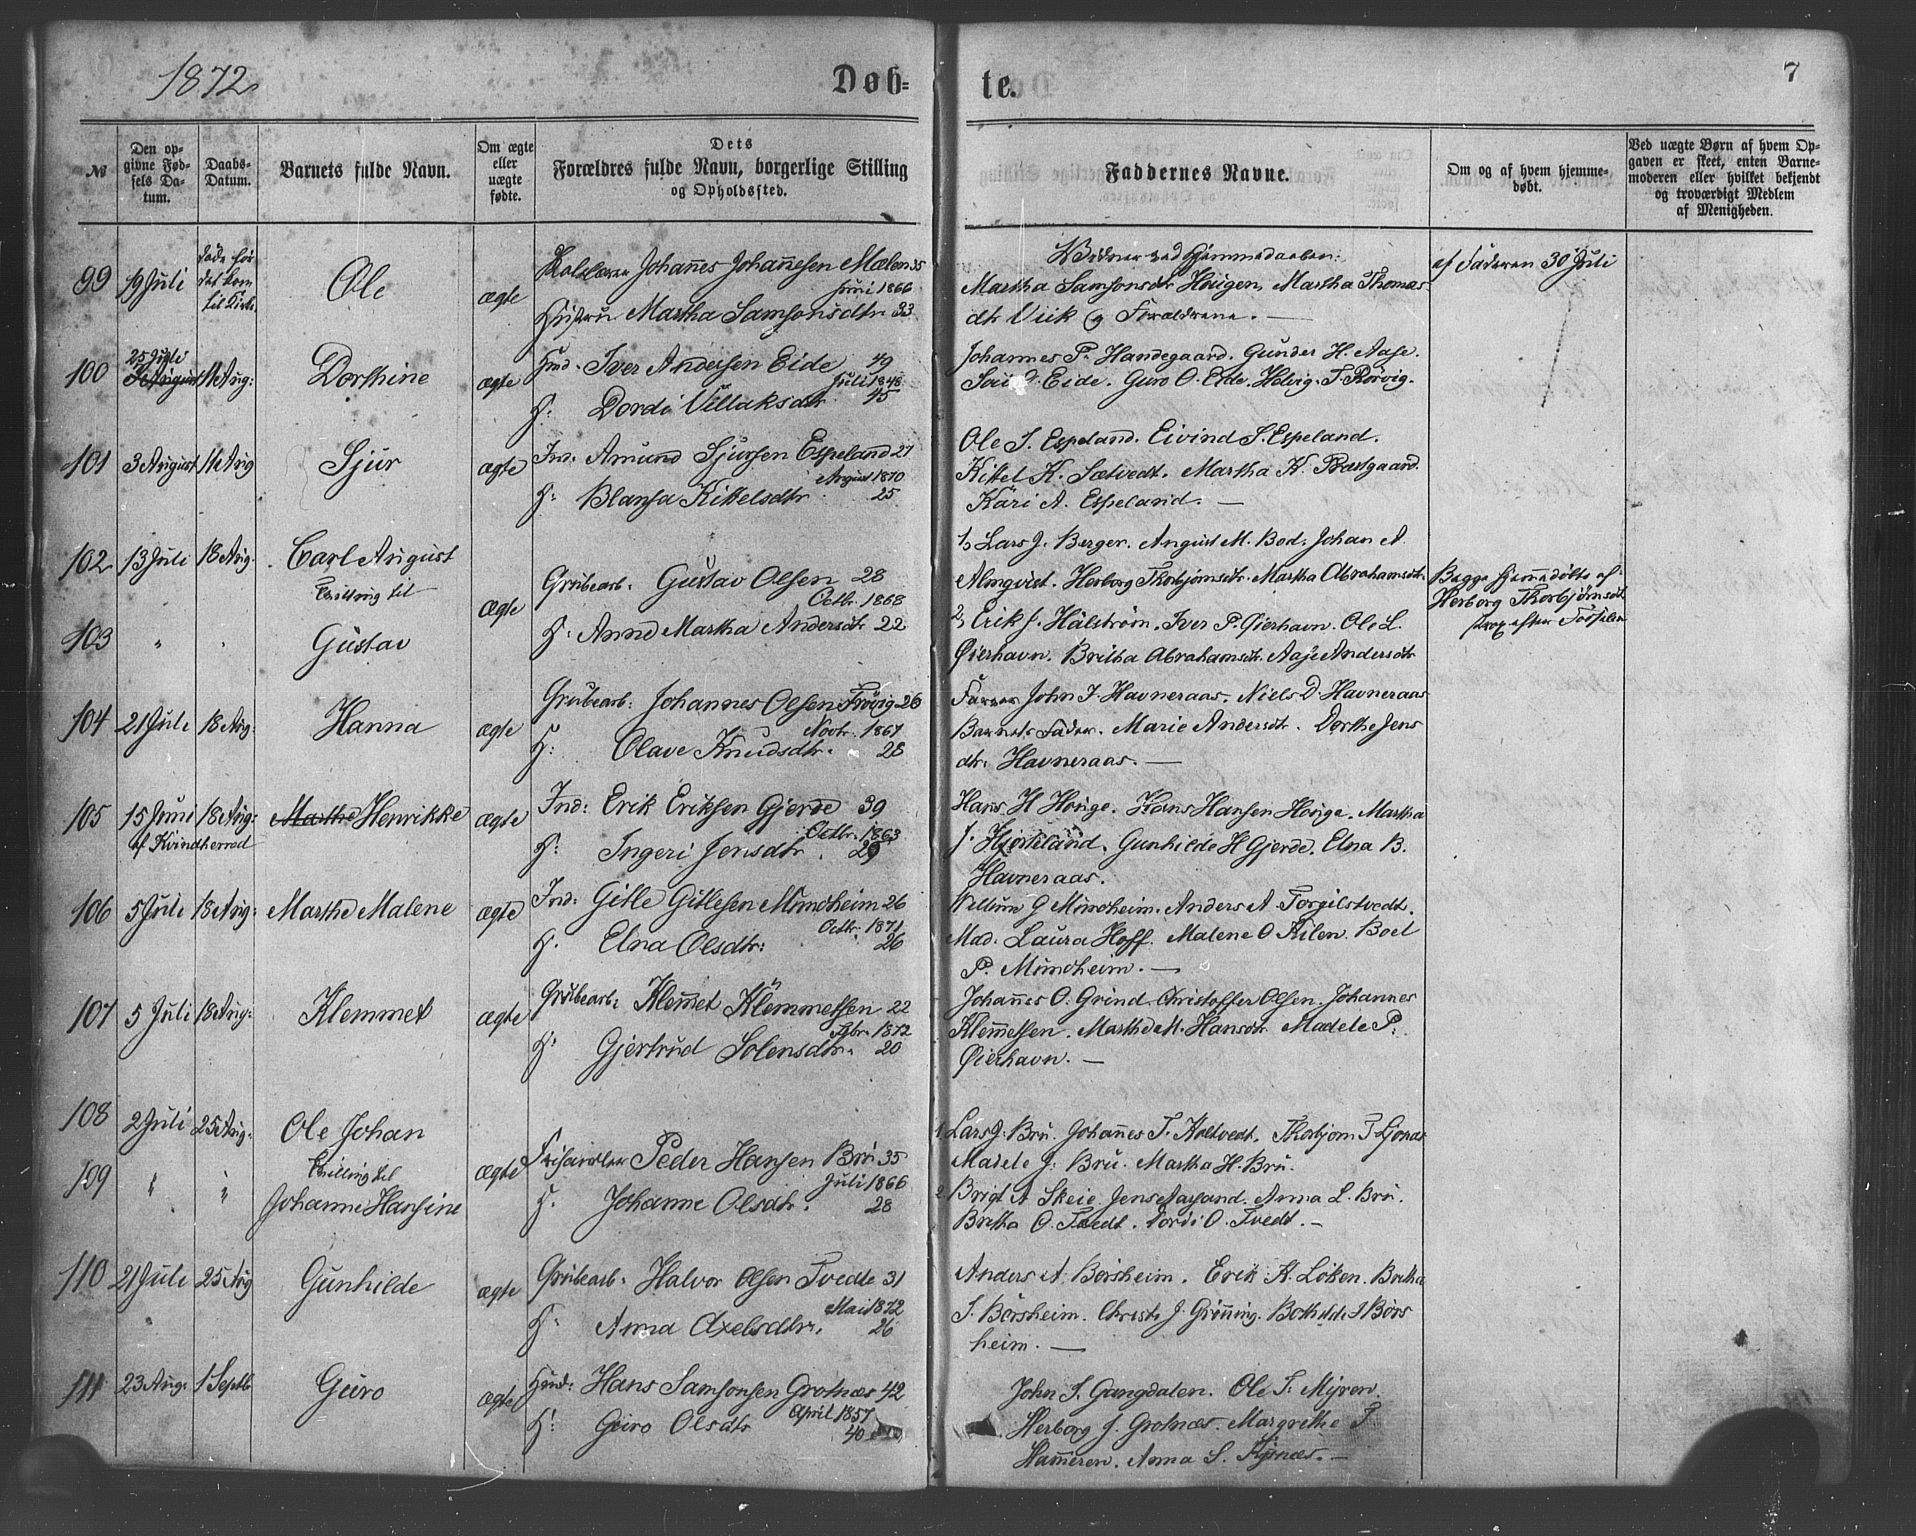 1872
Døb-
te.
7
№
Den op-
givne Fød-
sels Da-
tum.
Daabs-
Datum.
Barnets fulde Navn.
Om ægte
eller
uægte
fødte.
Dets
Forældres fulde Navn, borgerlige Stilling
og Opholdssted.
Faddernes Navne.
Om og af hvem hjemme-
døbt.
Ved uægte Børn af hvem Op-
gaven er skeet, enten Barne-
moderen eller hvilket bekjendt
og troværdigt Medlem
af Menigheden.
99 19 Juli
døde før
det kom
til Kirke
Ole
ægte
Johannes Johannesen Mælen 35
Juni 1866
Hustru Martha Samsonsdtr 33
Vidner ved Hjemmedaaben:
Martha Samsonsdtr Haugen, Martha Thomas
dtr Viik og Forældrene. —
af Faderen 30 Juli
100
25 Juli
11 Aug:
Dorthine
ægte
Huusd. Iver Andersen Eide 49
Juli 1848
H: Dordi Villaksdtr 45
Johannes P. Handegaard. Gunder H. Aase.
Eide. Guro O. Eide. Helvig T. Rørvig.
101 3 August 11 Aug
Sjur
ægte
Ind: Amund Sjursen Espeland 27
August 1870
H: Blansa Kittelsdtr 25
Ole S. Espeland. Eivind S. Espeland.
Kittel K. Sætvedt. Martha K. Præstgaard.
Kari A. Espeland. —
102 13 Juli 18 Aug.
Carl August
Tvilling til
ægte
Grubearb: Gustav Olsen 28
Octbr. 1868
H: Anne Martha Andersdtr 22
1, Lars J. Berger. August M. Bod. Johan A.
Almqvist. Herborg Thorbjørnsdtr. Martha Abrahamsdtr.
Begge hjemmedøbte af
Herborg Thorbjørnsdtr
strax efter Fødselen
103 " "
Gustav
2, Erik J. Hálstrøm. Iver P. Øierhavn. Ole L.
Øierhavn. Britha Abrahamsdtr. Aase Andersdtr
104 21 Juli 18 Aug.
Hanna
ægte
Grubearb: Johannes Olsen Frøvig 26
Novbr. 1867
H: Olave Knudsdtr. 28
John J. Havneraas. Niels D. Havneraas
Barnets Fader. Marie Andersdtr. Dorthe Jens
dtr. Havneraas. —
105 15 Juni 18 Aug:
af Kvindherred
Marthe Henrikke
ægte
Ind: Erik Eriksen Gjerde 39
Octbr. 1863
H: Ingeri Jensdtr. 29
Hans H Houge. Hans Hansen Houge. Martha
J. Hjorteland. Gunhilde H Gjerde. Elna B.
Havneraas.
106 5 Juli 18 Aug:
Marthe Malene
ægte
Ind: Gitle Gitlesen Mundheim 26
Octbr. 1871
H. Elna Olsdtr: 26
Willum G Mundheim. Anders A. Torgilstvedt.
Mad. Laura Hoff. Malene O Kilen. Boel
P. Mundheim. —
107 5 Juli 18 Aug:
Klemmet
ægte
Grubearb: Klemmet Klemmetsen 22
1872
H: Gjertrud Solensdtr. 20
Johannes O. Grind. Christoffer Olsen. Johannes
Klemetsen. Marthe M. Hansdtr. Madele P.
Øierhavn. —
108 2 Juli 25 Aug:
Ole Johan
Tvilling til
ægte
Peder Hansen Bru 35
Juli 1866
H. Johanne Olsdtr. 28
1. Lars J. Bru. Johannes T. Holtvedt. Thorbjørn T Ljonæs
Madele J. Bru. Martha H. Bru.
109 " "
Johanne Hansine
2. Brigt A Skeie. Jens Aarsand. Anna L. Bru.
Britha O. Tvedt. Dordi O. Tvedt. —
110 21 Juli 25 Aug
Gunhilde
ægte
Grubearb. Halvor Olsen Tvedte 31
Mai 1872
H. Anna Axelsdtr. 26
Anders A. Børsheim. Erik A. Løken. Britha
S. Børsheim. Christi J. Grønning. Bothilde I Børs
heim. —
111 23 Aug: 1 Septb
Guro
ægte
Huusd: Hans Samsonsen Grotnæs 42
April 1857
H: Guro Olsdtr 40
John S. Gangdalen. Ole T. Myren.
Herborg J. Grotnæs. Margrethe T
Hammeren. Anna S. Fysnæs. —